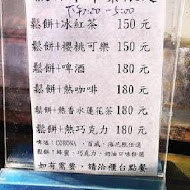 下午2:00-5:00
鬆餅+冰紅茶 150 元
鬆餅+櫻桃可樂 150 元
鬆餅+啤酒 180 元
鬆餅+熱咖啡 180 元
鬆餅+熱香水蓮花茶 180 元
鬆餅+熱巧克力 180 元
啤酒：CORONA、百威、海尼根任選
鬆餅：蜂蜜、巧克力、奶油口味任選
如有需要，請洽櫃台點餐